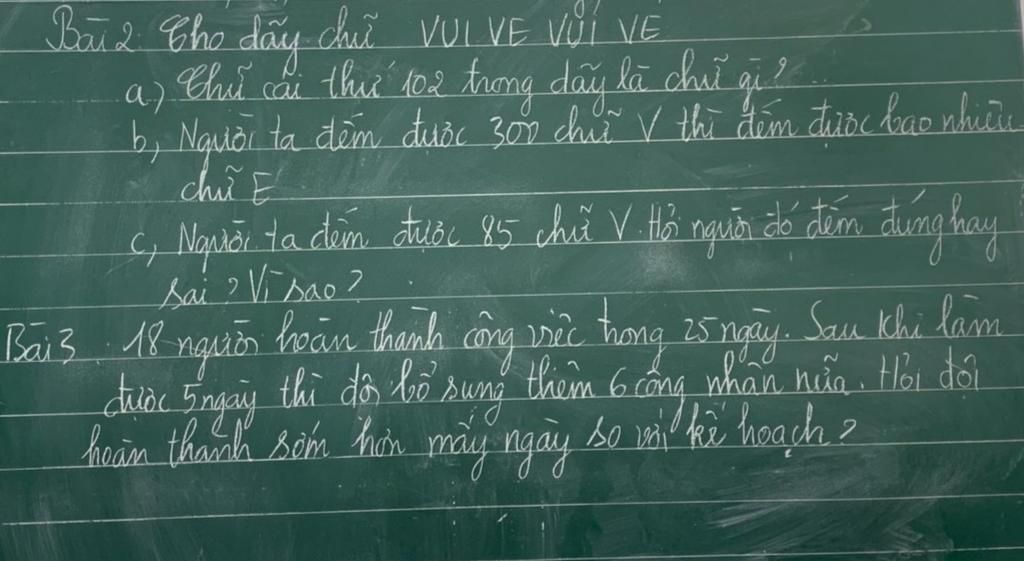 Bài 2. Cho dãy chữ VUI VE VUI VE
a) Chữ cái thứ 102 trong dãy là chữ gì?
b, Người ta đếm được 300 chữ V thì đếm được bao nhiêu
chữ E
c, Người ta đếm được 85 chữ V. Hỏi người đó đếm đúng hay
sai? Vì sao?
Bài 3 18 người hoàn thành công việc trong 25 ngày. Sau khi làm
được 5 ngày thì đội bổ sung thêm 6 công nhân nữa. Hỏi đội
hoàn thành sớm hơn mấy ngày so với kế hoạch?